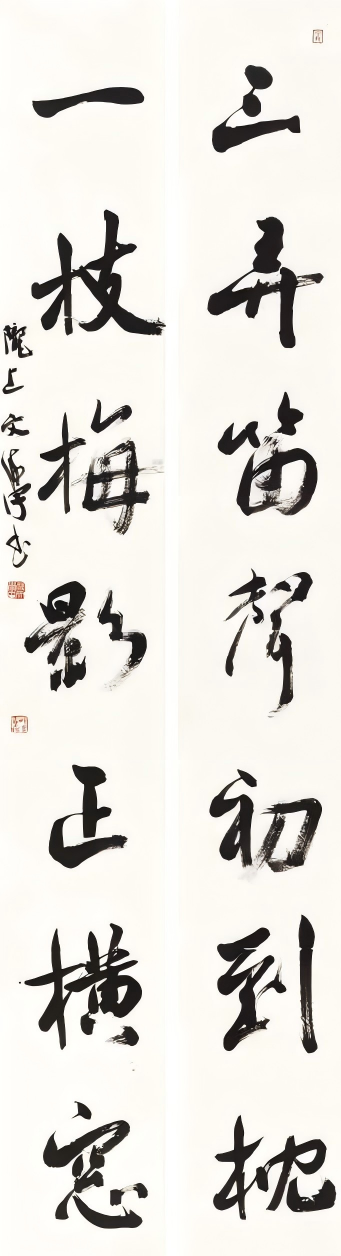 三弄笛聲初到枕
一枝梅影正橫窓
隴上文